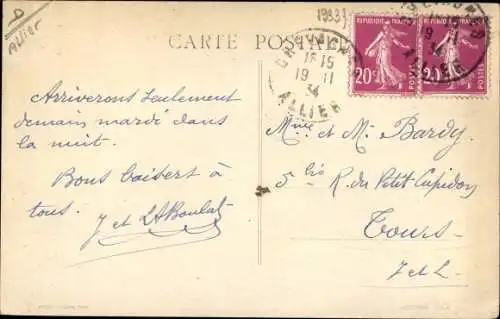 D
Allier
1933
CARTE POSTALE
16 15
19 11
34
ALLIER
REPUBLIQUE FRANÇAISE
20c
19 11
34
ALLIER
Arriverons seulement
demain mardi dans
la nuit.
Bons baisers à
tous.
J et L
Mme et M. Bardy
5 bis R. du Petit Cupidon
Tours
I et L.